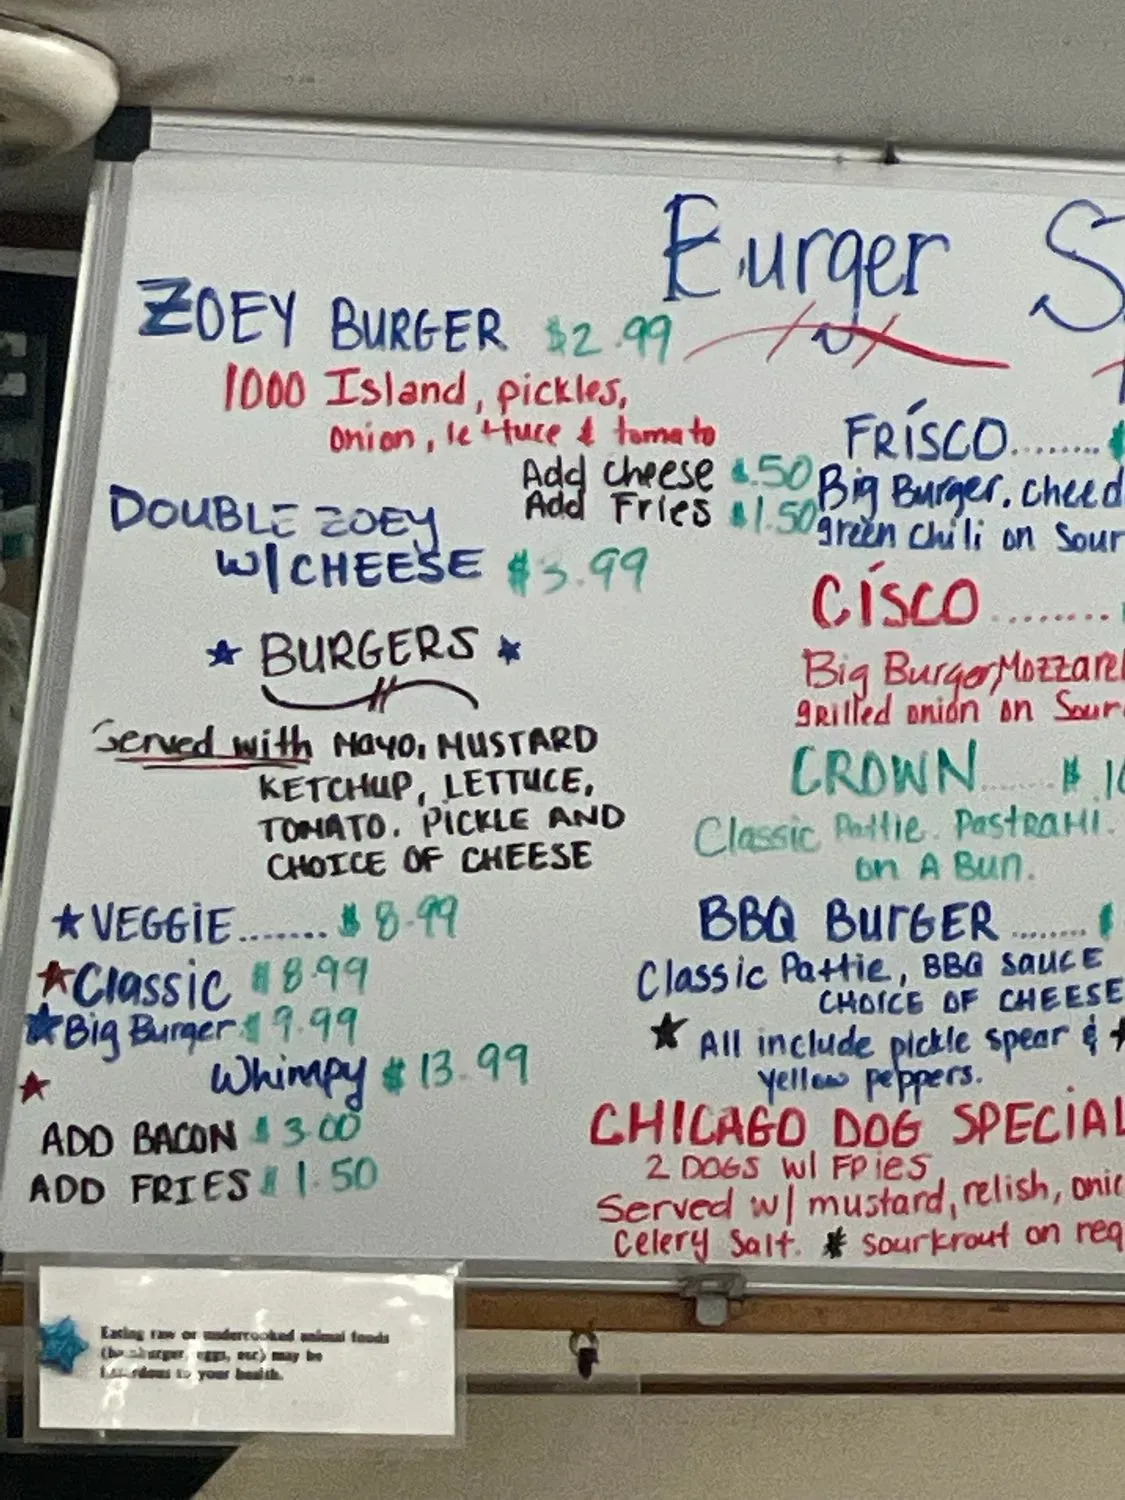 Burger S
ZOEY BURGER $2.99
1000 Island, pickles,
onion, lettuce & tomato
Add cheese $.50
Add Fries $1.50
DOUBLE ZOEY
W/CHEESE $3.99
BURGERS
Served with MAYO, MUSTARD
KETCHUP, LETTUCE,
TOMATO. PICKLE AND
CHOICE OF CHEESE
VEGGIE....... $8.99
Classic $8.99
Big Burger $9.99
Whimpy $13.99
ADD BACON $3.00
ADD FRIES $1.50
FRISCO........$
Big Burger. Ched
green chili on Sour
CISCO........
Big Burger, Mozzarel
grilled onion on Sour
CROWN...... $10
Classic Pattie. PastRAMi.
on A Bun.
BBQ BURGER ........$
Classic Pattie, BBQ SAUCE
CHOICE OF CHEESE
All include pickle spear &
yellow peppers.
CHICAGO DOG SPECIAL
2 DOGS w/ FRIES
Served w/ mustard, relish, onio
Celery Salt. * sourkrout on req
Eating raw or undercooked animal foods
(hamburger, eggs, etc) may be
hazardous to your health.